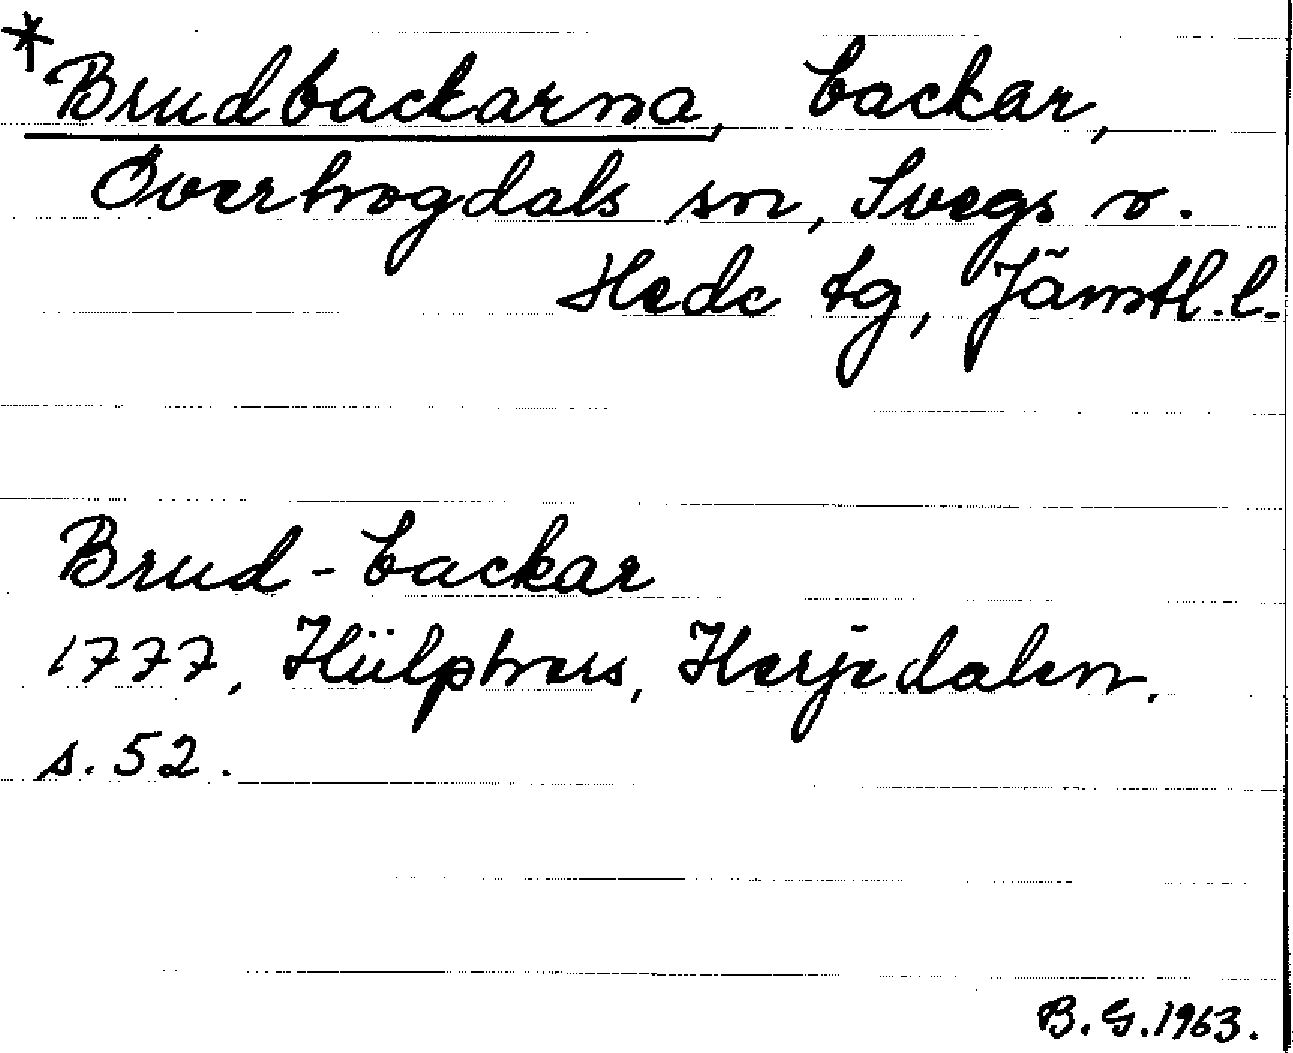 * Brudbackarna, backar,
Överhogdals sn, Svegs o.
Hede tg, Jämtl. l.
Brud-backar
1777, Hülphers, Herjedalen.
s. 52.
B. G. 1963.